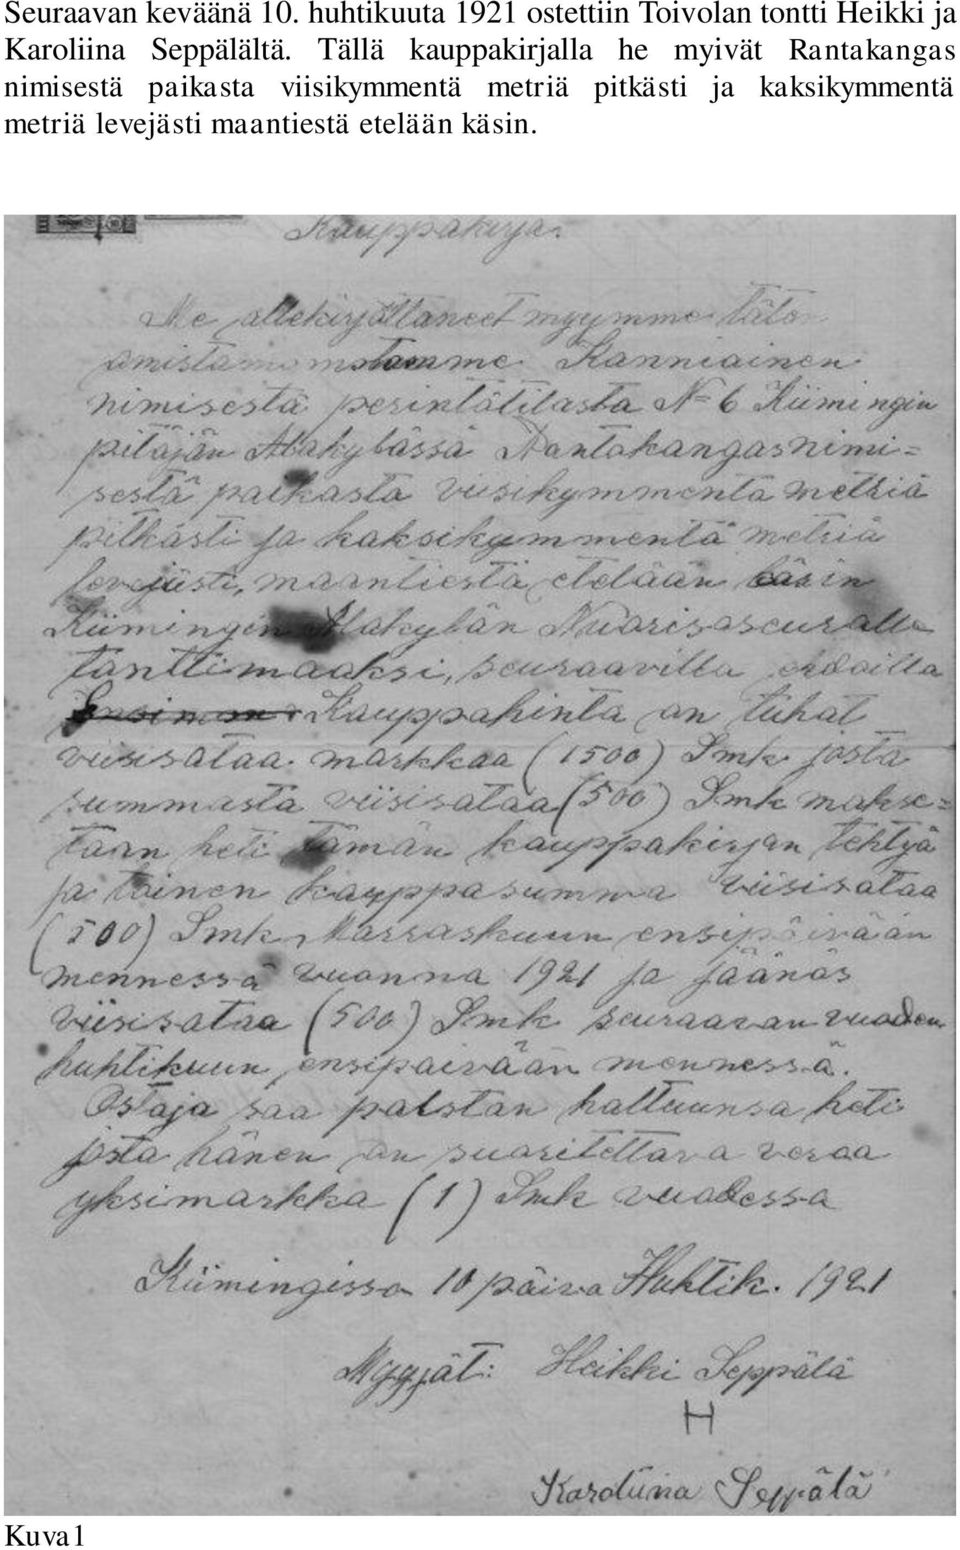 Seuraavan keväänä 10. huhtikuuta 1921 ostettiin Toivolan tontti Heikki ja
Karoliina Seppälältä. Tällä kauppakirjalla he myivät Rantakangas
nimisestä paikasta viisikymmentä metriä pitkästi ja kaksikymmentä
metriä levejästi maantiestä etelään käsin.
Kauppakirja.
Me allekirjottaneet myymme täten
omistamomstamme Kanniainen
nimisestä perintötilasta N= 6 Kiimingin
pitäjän Alakylässä Rantakangas nimi=
sestä paikasta viisikymmentä metriä
pitkästi ja kaksikymmentä metriä
levejästi, maantiestä etelään käsin
Kiimingin Alakylän Nuorisoseuralle
tonttimaaksi, seuraavilla ehdoilla
Kauppahinta on tuhat
viisisataa markkaa (1500) Smk josta
summasta viisisataa (500) Smk makse=
taan heti tämän kauppakirjan tehtyä
ja toinen kauppasumma viisisataa
(500) Smk, Marraskuun ensipäivään
mennessä vuonna 1921 ja jäänös
viisisataa (500) Smk seuraavan vuoden
huhtikuun ensipäivään mennessä.
Ostaja saa palstan haltuunsa heti
josta hänen on suoritettava veroa
yksimarkka (1) Smk vuodessa
Kiimingissä 10 päivä Huhtik. 1921
Myyjät: Heikki Seppälä
H
Karoliina Seppälä
Kuva1